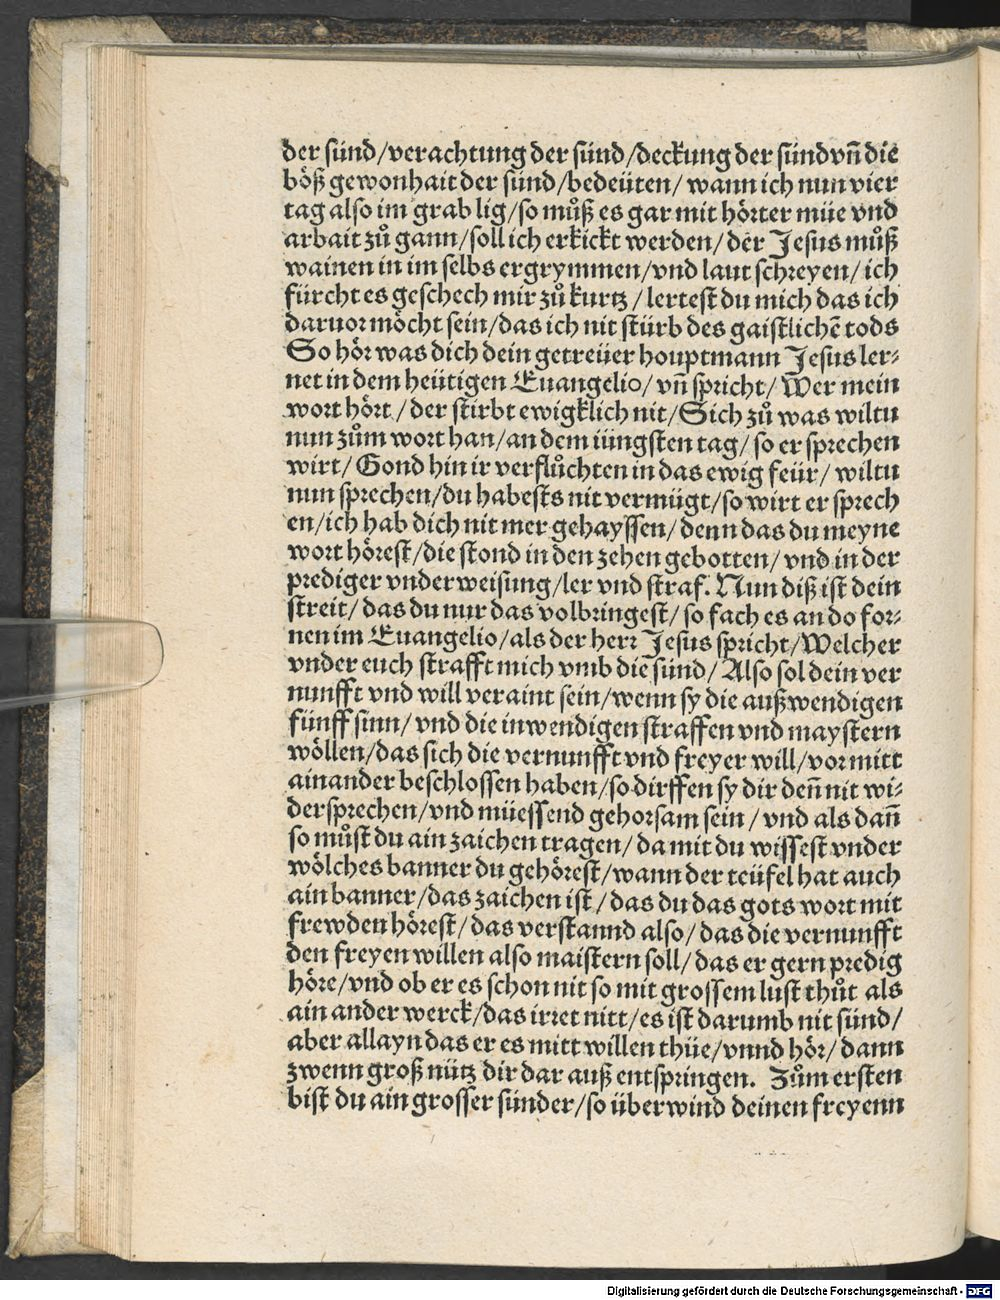 der sünd/verachtung der sünd/deckung der sündvn̄ die
böß gewonhait der sünd/bedeüten/ wann ich nun vier
tag also im grab lig/so můß es gar mit hörter müe vnd
arbait zů gann/soll ich erkickt werden/ der Jesus můß
wainen in im selbs ergrymmen/vnd laut schreyen/ ich
fürcht es geschech mir zů kurtz/ lertest du mich das ich
daruor möcht sein/das ich nit stürb des gaistlichē tods
So hör was dich dein getreüer houptmann Jesus ler⸗
net in dem heütigen Euangelio/ vn̄ spricht/ Wer mein
wort hört/ der stirbt ewigklich nit/Sich zů was wiltu
nun zům wort han/an dem iüngsten tag/ so er sprechen
wirt/ Gond hin ir verflůchten in das ewig feür/ wiltu
nun sprechen/du habests nit vermügt/so wirt er sprech
en/ich hab dich nit mer gehayssen/ denn das du meyne
wort hörest/die stond in den zehen gebotten/ vnd in der
prediger vnderweisung/ler vnd straf. Nun diß ist dein
streit/ das du nur das volbringest/ so fach es an do for⸗
nen im Euangelio/als der herr Jesus spricht/Welcher
vnder euch strafft mich vmb die sünd/ Also sol dein ver
nunfft vnd will veraint sein/wenn sy die außwendigen
fünff sinn/ vnd die inwendigen straffen vnd maystern
wöllen/das sich die vernunfft vnd freyer will/vor mitt
ainander beschlossen haben/so dirffen sy dir den̄ nit wi⸗
dersprechen/vnd müessend gehorsam sein/ vnd als dan̄
so můst du ain zaichen tragen/ da mit du wissest vnder
wölches banner du gehörest/wann der teüfel hat auch
ain banner/das zaichen ist/ das du das gots wort mit
frewden hörest/ das verstannd also/ das die vernunfft
den freyen willen also maistern soll/ das er gern predig
höre/vnd ob er es schon nit so mit grossem lust thůt als
ain ander werck/das irret nitt/es ist darumb nit sünd/
aber allayn das er es mitt willen thüe/vnnd hör/ dann
zwenn groß nütz dir dar auß entspringen. Zům ersten
bist du ain grosser sünder/so überwind deinen freyenn
Digitalisierung gefördert durch die Deutsche Forschungsgemeinschaft - DFG